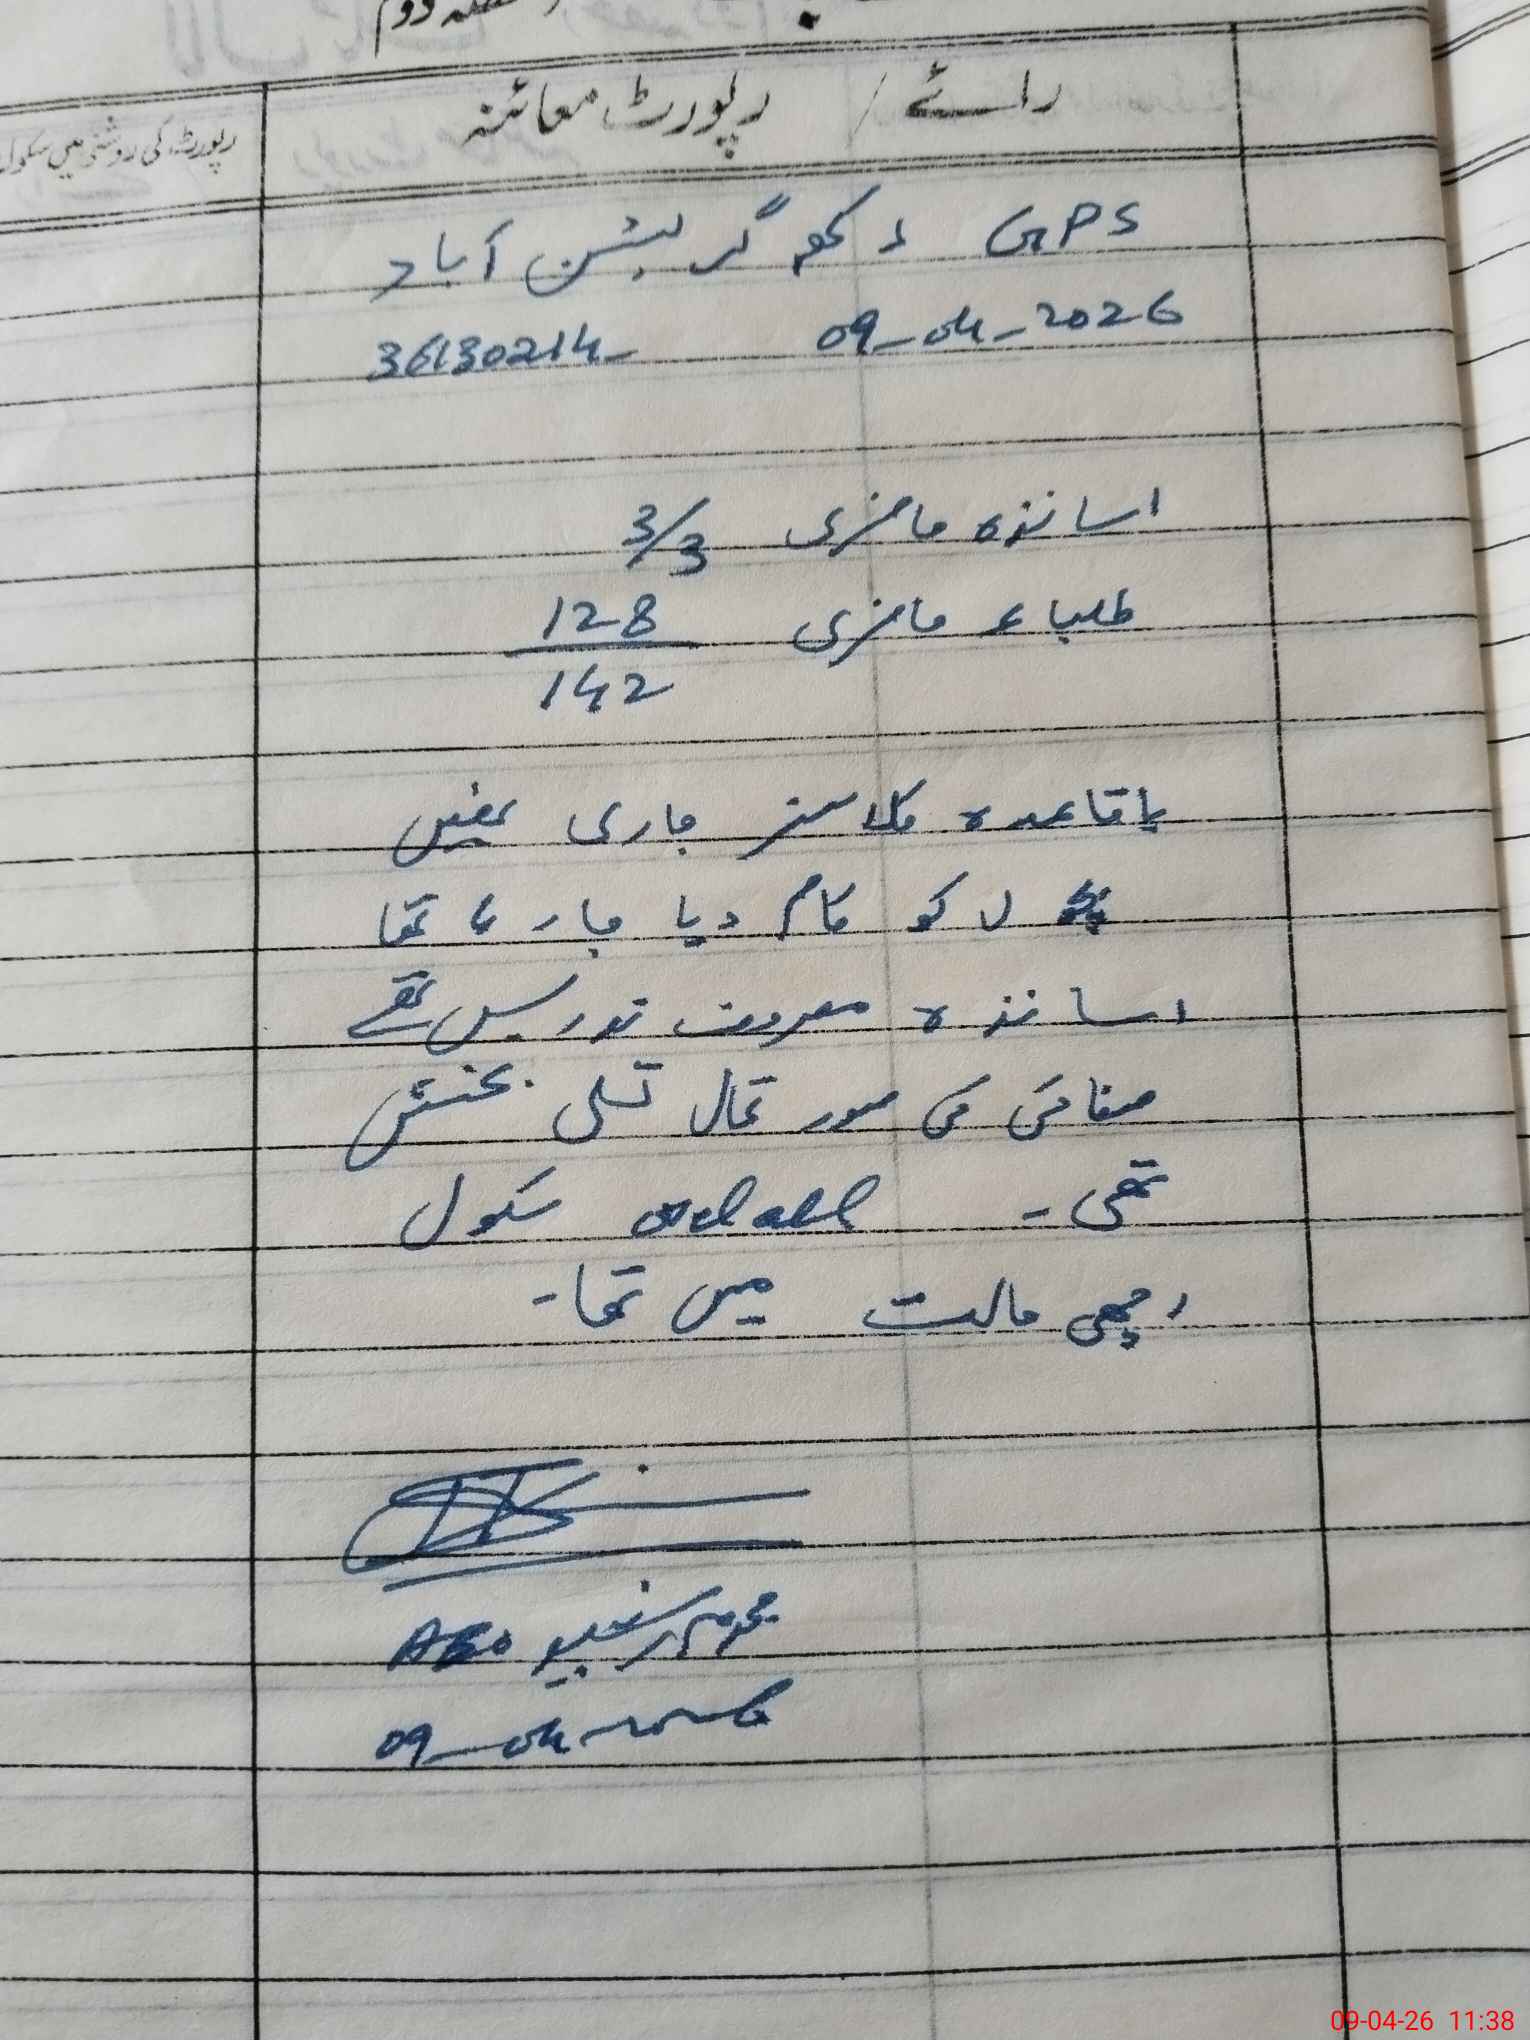 حصہ دوم
رائے / رپورٹ معائنہ
رپورٹ کی روشنی میں سکول
GPS گر بشن آباد
09-04-2026 36130214
اساتذہ حاضری 3/3
طلباء حاضری 128/142
باقاعدہ کلاسز جاری تھیں
بچوں کو کام دیا جا رہا تھا
اساتذہ مصروف تدریس تھے
صفائی کی صورتحال تسلی بخش
تھی۔ سکول
اچھی حالت میں تھا۔
AEO
09-04-
09-04-26 11:38